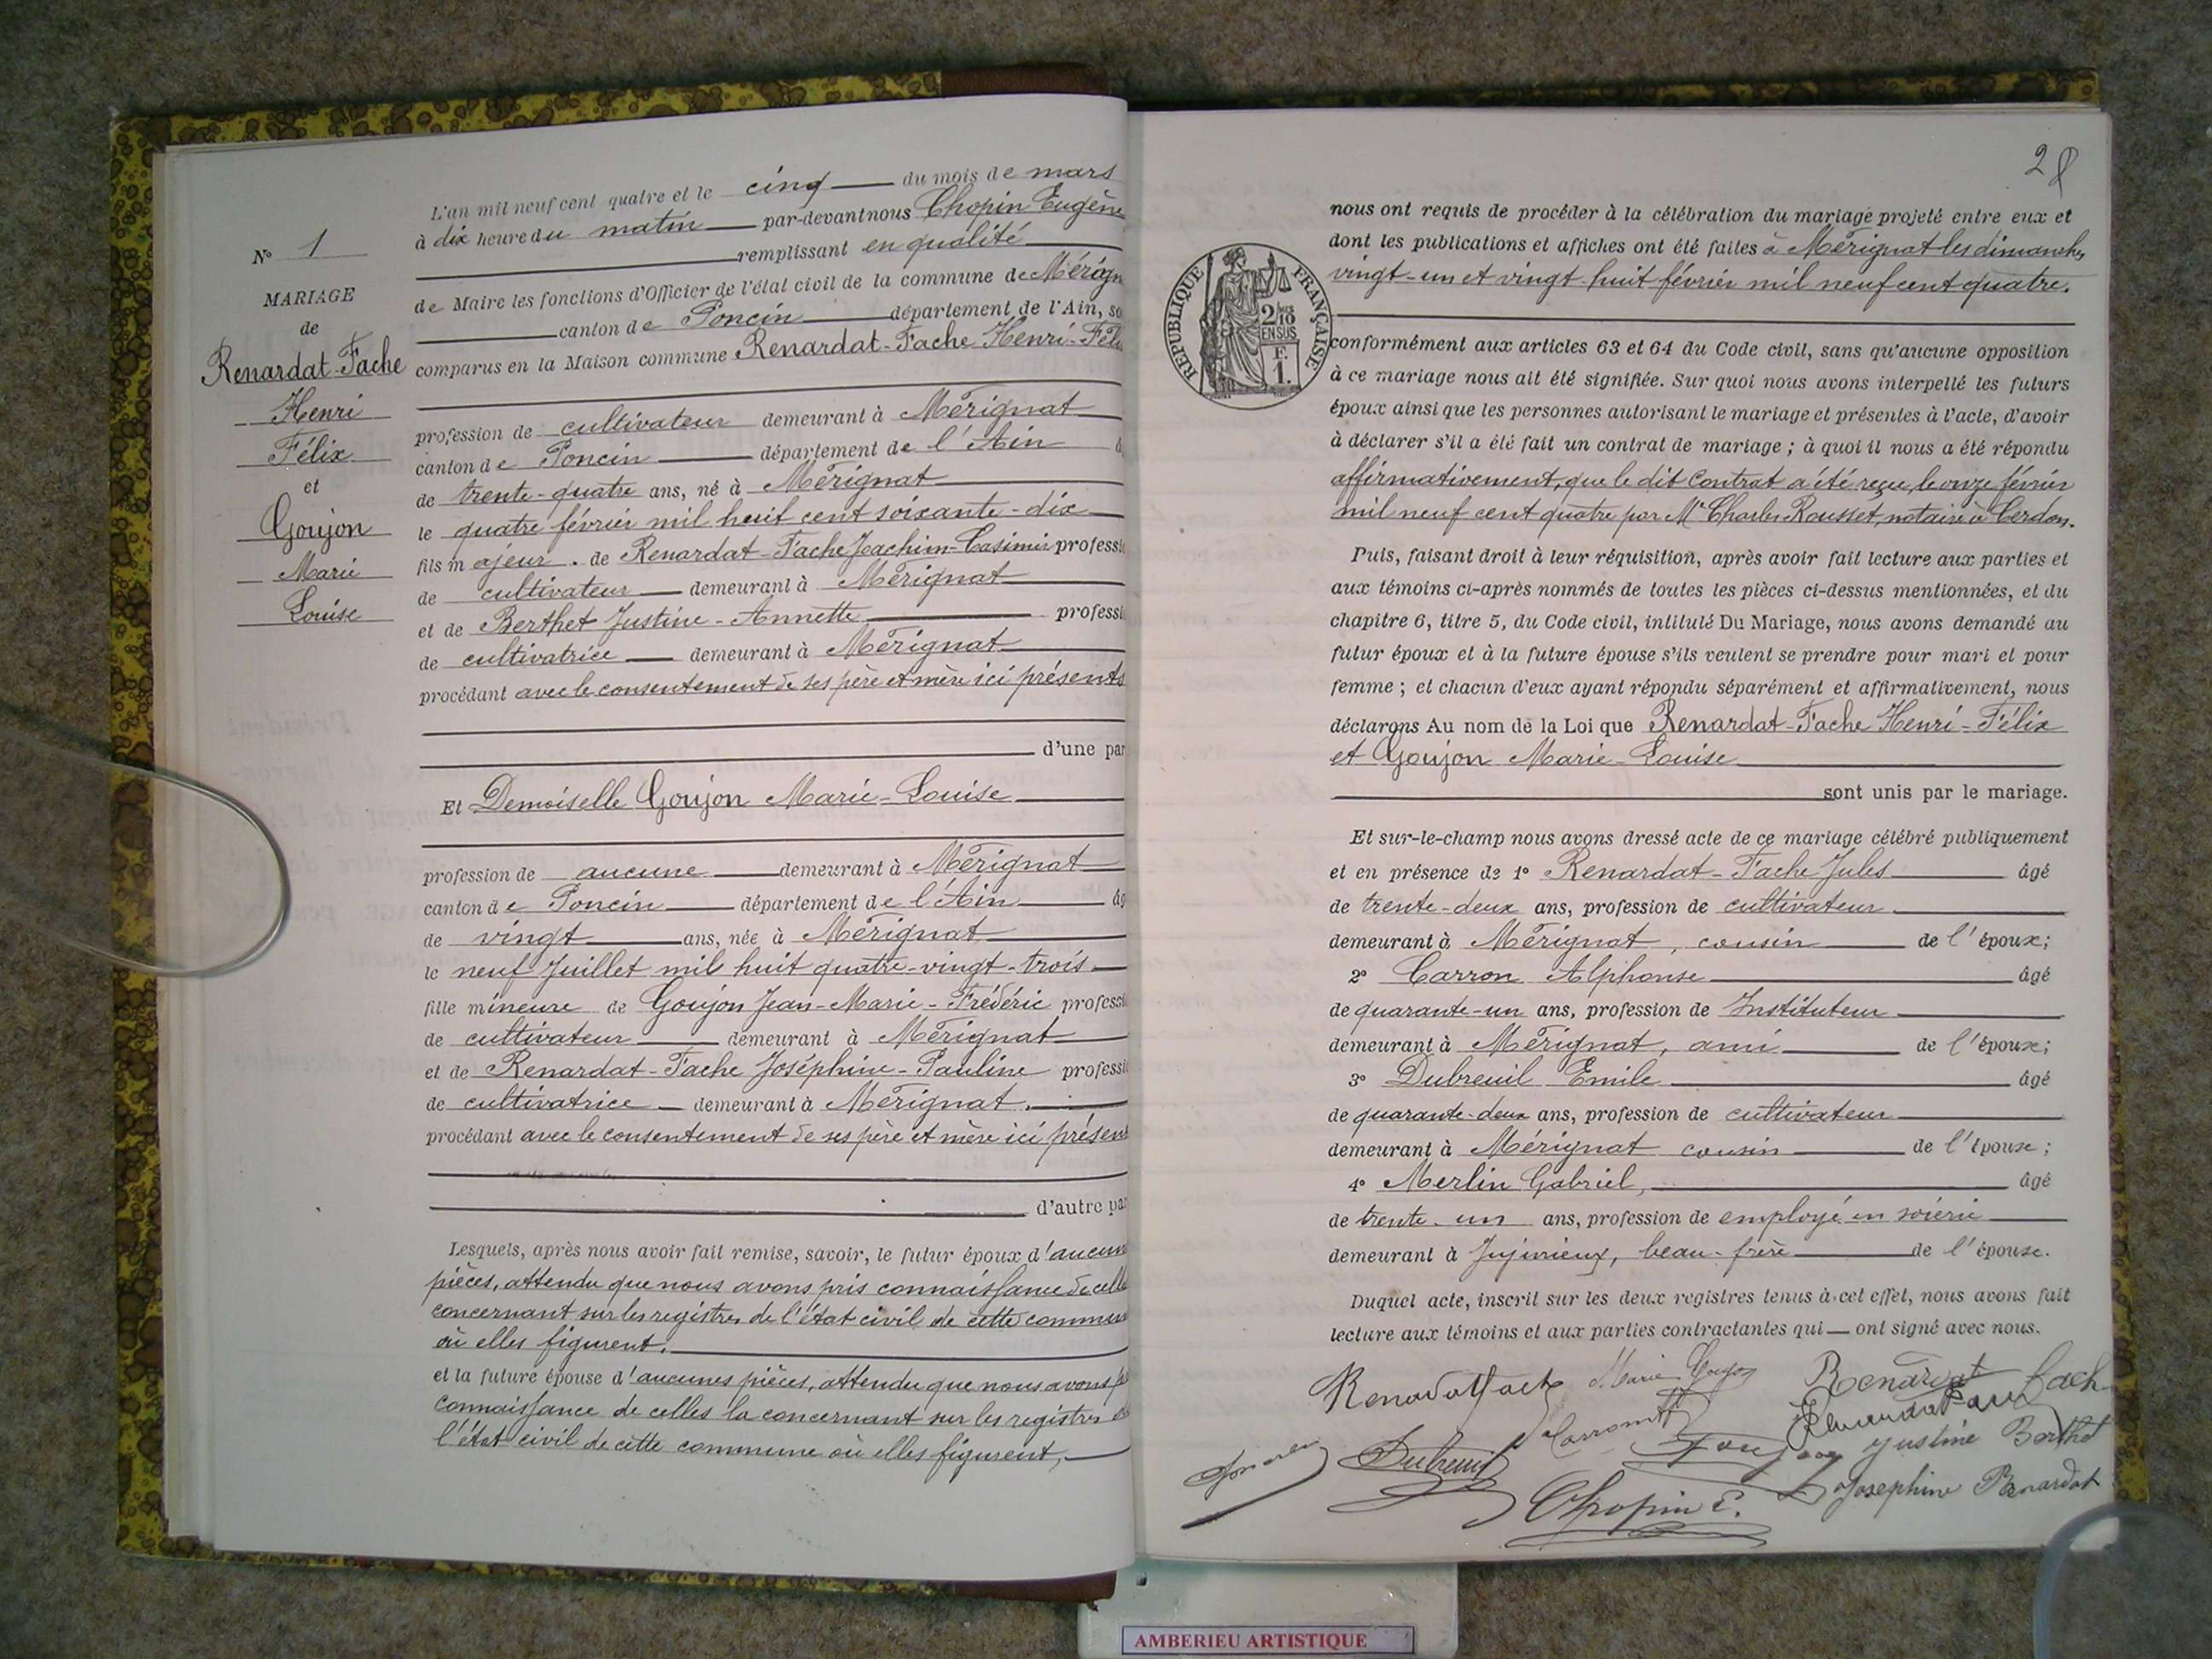 N° 1
MARIAGE
de
Renardat-Fache
Henri
Félix
et
Goujon
Marie
Louise
L'an mil neuf cent quatre et le cinq du mois de mars
à dix heure du matin par-devant nous Chopin Eugène
remplissant en qualité
de Maire les fonctions d'Officier de l'état civil de la commune de Mérign
canton de Poncin département de l'Ain, so
comparus en la Maison commune Renardat-Fache Henri-Féli
profession de cultivateur demeurant à Mérignat
canton de Poncin département de l'Ain
de trente-quatre ans, né à Mérignat
le quatre février mil huit cent soixante-dix
fils majeur de Renardat-Fache Joachim-Casimir professi
de cultivateur demeurant à Mérignat
et de Berthet Justine-Annette professi
de cultivatrice demeurant à Mérignat
procédant avec le consentement de ses père et mère ici présents
d'une par
Et Demoiselle Goujon Marie-Louise
profession de aucune demeurant à Mérignat
canton de Poncin département de l'Ain âg
de vingt ans, née à Mérignat
le neuf Juillet mil huit quatre-vingt-trois
fille mineure de Goujon Jean-Marie-Frédéric professi
de cultivateur demeurant à Mérignat
et de Renardat-Fache Joséphine-Pauline professi
de cultivatrice demeurant à Mérignat.
procédant avec le consentement de ses père et mère ici présen
d'autre par
Lesquels, après nous avoir fait remise, savoir, le futur époux d'aucune
pièces, attendu que nous avons pris connaissance de celle
concernant sur les registres de l'état civil de cette commune
où elles figurent.
et la future épouse d'aucunes pièces, attendu que nous avons
connaissance de celles la concernant sur les registres
l'état civil de cette commune où elles figurent,
28
REPUBLIQUE FRANÇAISE
2/10
EN SUS
F.
1.
nous ont requis de procéder à la célébration du mariage projeté entre eux et
dont les publications et affiches ont été faites à Mérignat les dimanches
vingt-un et vingt huit février mil neuf cent quatre.
conformément aux articles 63 et 64 du Code civil, sans qu'aucune opposition
à ce mariage nous ait été signifiée. Sur quoi nous avons interpellé les futurs
époux ainsi que les personnes autorisant le mariage et présentes à l'acte, d'avoir
à déclarer s'il a été fait un contrat de mariage ; à quoi il nous a été répondu
affirmativement, que le dit Contrat a été reçu le onze février
mil neuf cent quatre par Me Charles Rousset, notaire à Cerdon.
Puis, faisant droit à leur réquisition, après avoir fait lecture aux parties et
aux témoins ci-après nommés de toutes les pièces ci-dessus mentionnées, et du
chapitre 6, titre 5, du Code civil, intitulé Du Mariage, nous avons demandé au
futur époux et à la future épouse s'ils veulent se prendre pour mari et pour
femme ; et chacun d'eux ayant répondu séparément et affirmativement, nous
déclarons Au nom de la Loi que Renardat-Fache Henri-Félix
et Goujon Marie-Louise
sont unis par le mariage.
Et sur-le-champ nous avons dressé acte de ce mariage célébré publiquement
et en présence de 1° Renardat-Fache Jules âgé
de trente-deux ans, profession de cultivateur
demeurant à Mérignat, cousin de l'époux;
2° Carron Alphonse âgé
de quarante-un ans, profession de Instituteur
demeurant à Mérignat, ami de l'époux;
3° Dubreuil Emile âgé
de quarante-deux ans, profession de cultivateur
demeurant à Mérignat cousin de l'épouse ;
4° Merlin Gabriel, âgé
de trente-un ans, profession de employé en soierie
demeurant à Jujurieux, beau-frère de l'épouse.
Duquel acte, inscrit sur les deux registres tenus à cet effet, nous avons fait
lecture aux témoins et aux parties contractantes qui ont signé avec nous.
Renardat Fache Marie Goujon Renardat Fach
Carron
Dubreuil Goujon Justine Berthet
Chopin E. Josephine Renardat
AMBERIEU ARTISTIQUE